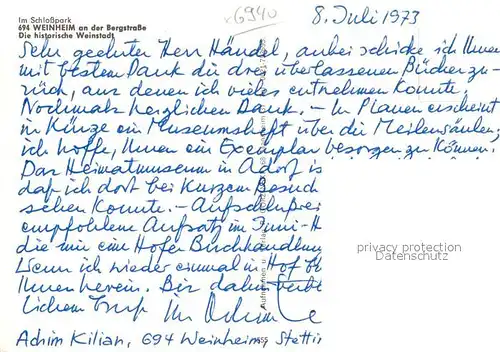 Im Schloßpark
694 WEINHEIM an der Bergstraße
Die historische Weinstadt
x6940
8. Juli 1973
Sehr geehrter Herr Händel, anbei schicke ich Ihnen
mit bestem Dank die drei überlassenen Bücher zu-
rück, aus denen ich vieles entnehmen konnte.
Nochmals herzlichen Dank. – In Plauen erscheint
in Kürze ein Museumsheft über die Meilensäulen,
ich hoffe, Ihnen ein Exemplar besorgen zu können.
Das Heimatmuseum in Adorf is
daß ich dort bei kurzem Besuch
sehen konnte. – Aufschlußrei
empfohlene Aufsatz im Juni-H
die mir eine Hofer Buchhandlung
Wenn ich wieder einmal in Hof
Ihnen herein. Bis dahin verbl
lichem Gruß Ihr
Achim Kilian, 694 Weinheim, Stettin
privacy protection